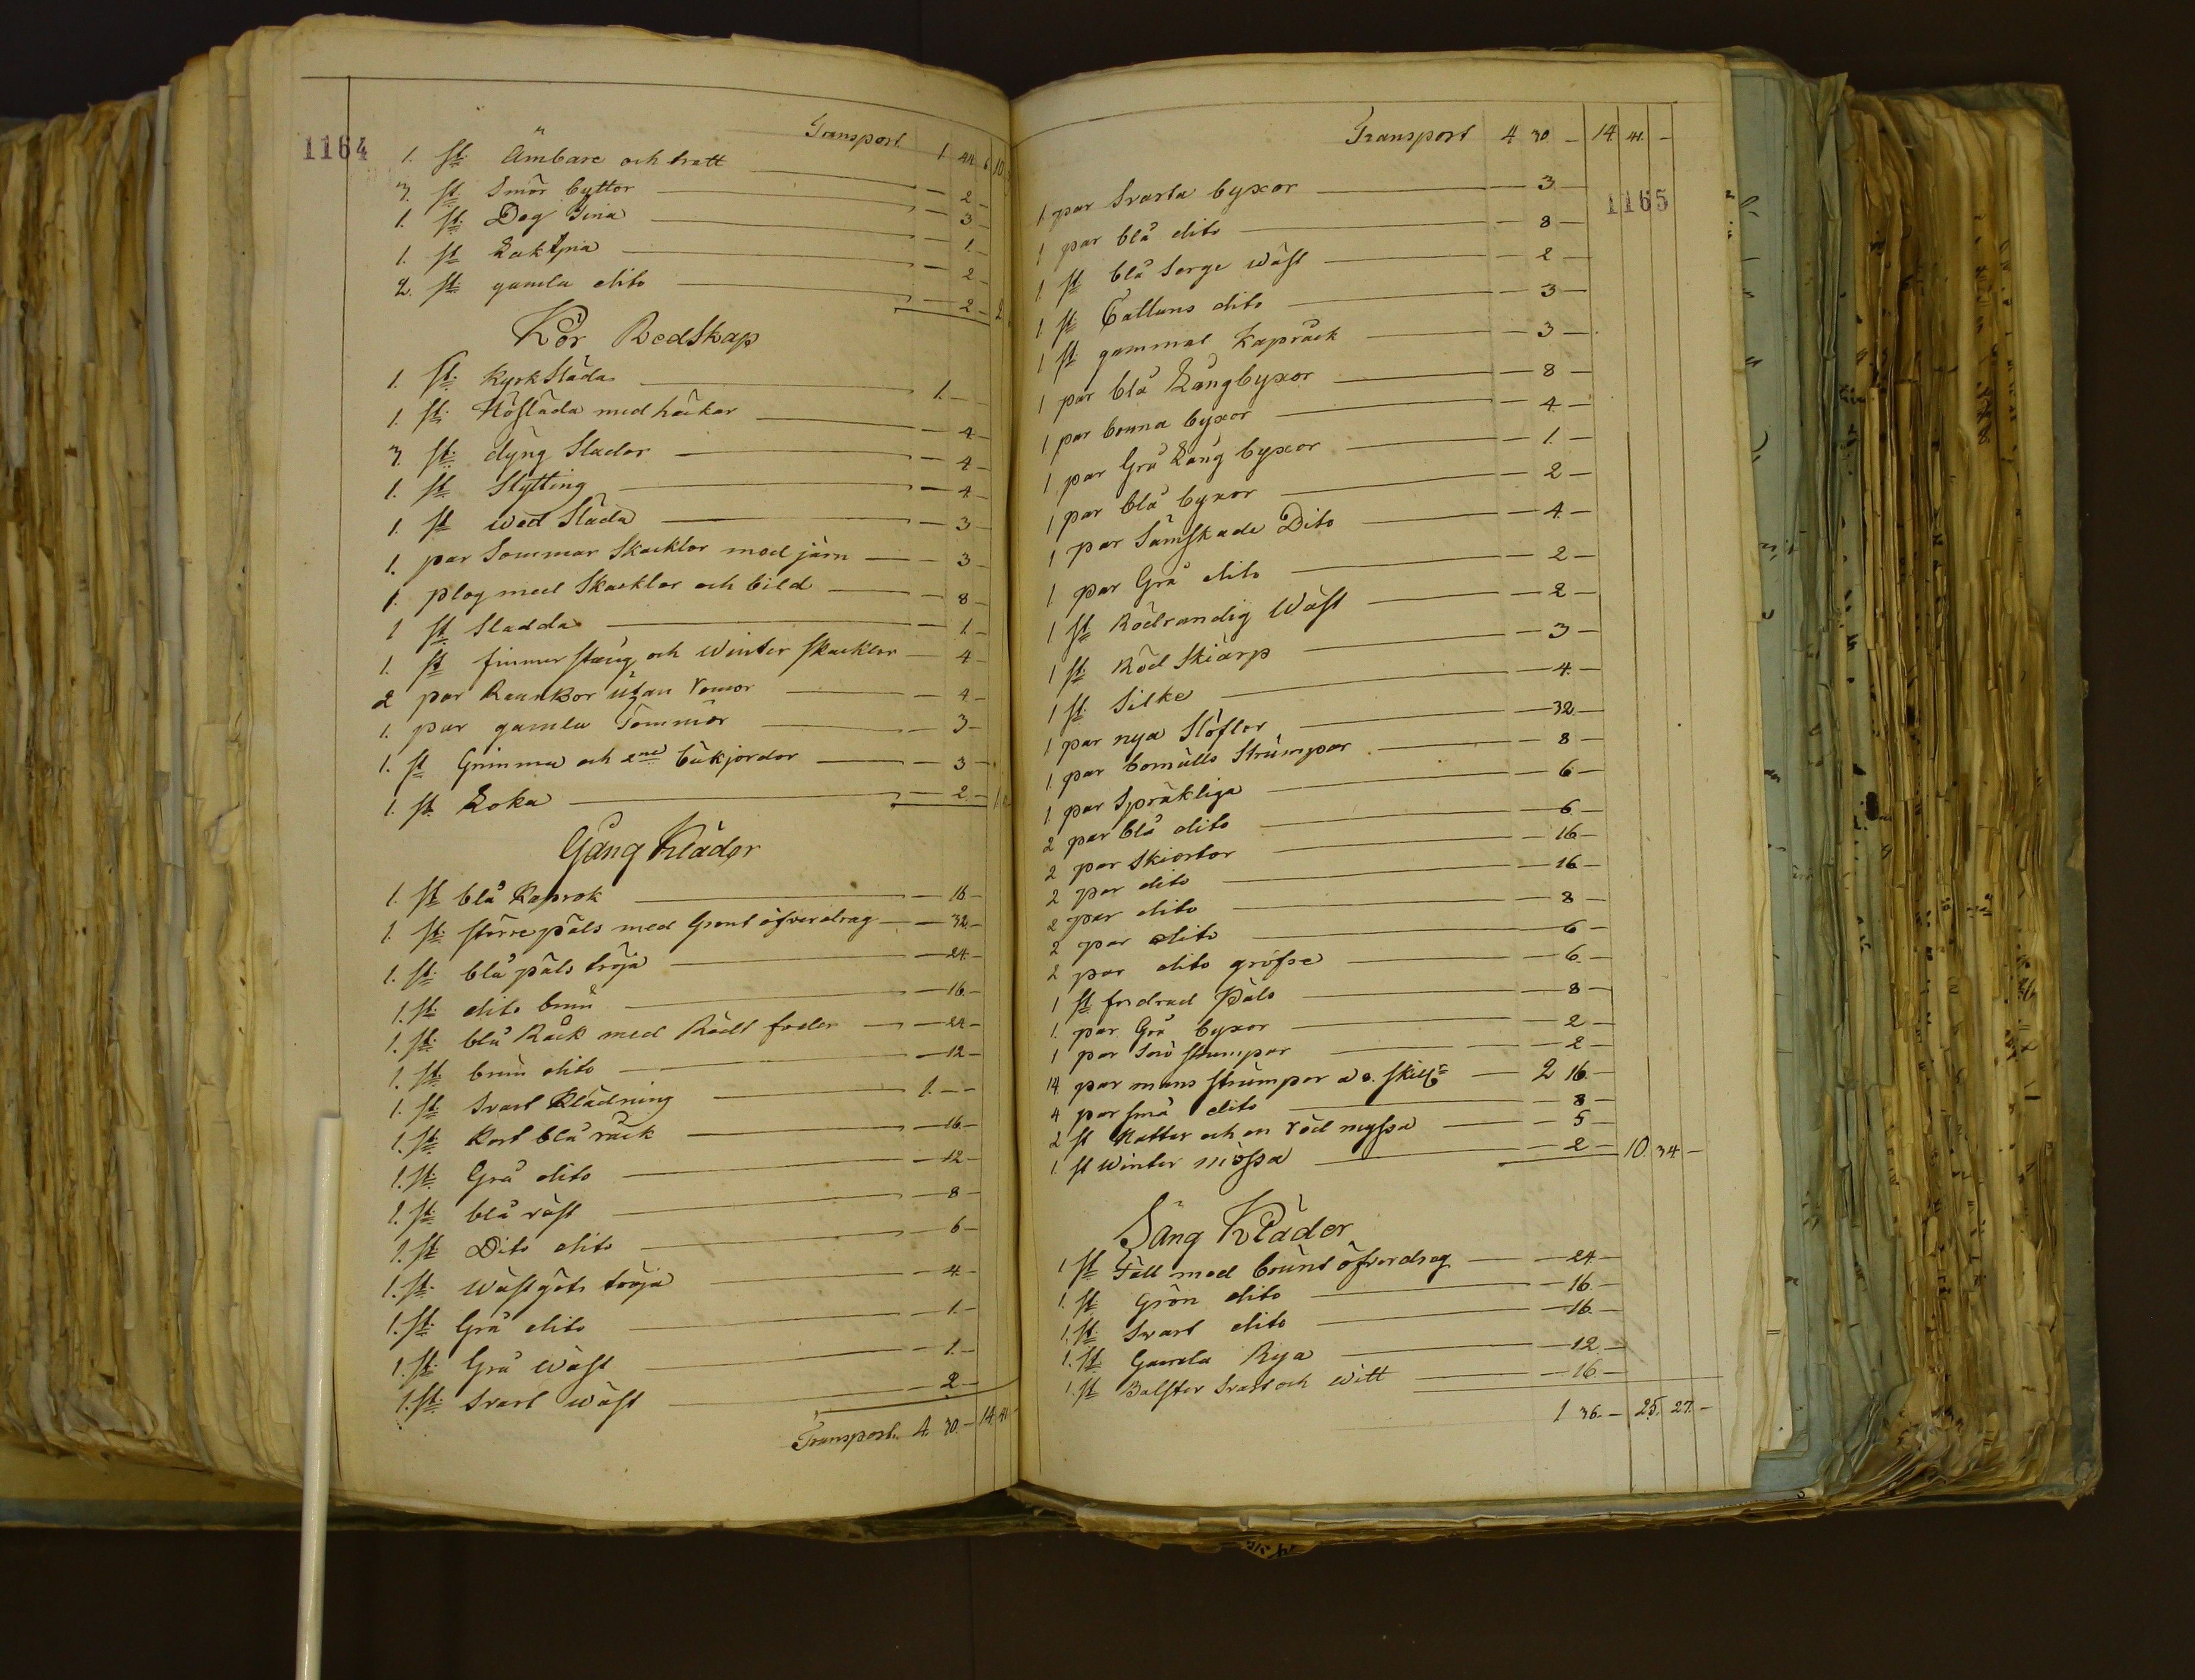 1164
Transport 1 44 6 10
1. st: Ämbare och tratt — 2 —
3. st: Smör byttor — 3 —
1. st: Deg Tina — 1. —
1. st Laktina — 2 —
2. st: gamla dito — 2 — 2
Kör Redskap
1. st: Kyrk Släda — 1. —
1. st: Hösläda med häckar — 4 —
3. st: dyng Slador — 4 —
1. st Stytting — 4 —
1. st wed Släda — 3 —
1. par Sommar Skacklor med järn — 3 —
1. plog med Skacklor och bild — 8 —
1 st Sladda — 1. —
1. st timmer stäng och Winter skacklor — 4 —
2 par Rankor utan remor — 4 —
1. par gamla Tömmör — 3 —
1. st Grimma och 2ne bukjordor — 3 —
1. st Loka — 2 —
Gång Kläder
1. st blå Kaprok — 16 —
1. st: större päls med Grönt öfverdrag — 32 —
1. st: blå päls tröja — 24 —
1. st: dito brun — 16 —
1. st: blå Råck med Rödt foder — 24 —
1. st: brun dito — 12 —
1. st: Svart Klädning — 1. —
1. st: Kort blå råck — 16 —
1. st: Grå dito — 12 —
1. st: blå väst — 8 —
1. st: Dito dito — 6 —
1. st: Wästgöts tröja — 4 —
1. st: Grå dito — 1. —
1. st: Grå Wäst — 1. —
1. st: Svart Wäst — 2 —
Transport. 4. 30. — 14 41 —
Transport 4 30 — 14 41. —
1165
1 par Svarta byxor — 3 —
1 par blå dito — 8 —
1. st blå Serge wäst — 2 —
1 st: Cattuns dito — 3 —
1 st: gammal Kapråck — 3 —
1 par blå Långbyxor — 8 —
1 par bruna byxor — 4 —
1 par Grå Lång byxor — 1. —
1 par blå byxor — 2 —
1 par Sämskade Dito — 4 —
1. par Grå dito — 2 —
1 st Rödrandig Wäst — 2 —
1 st. Röd Skiärp — 3 —
1 st. Silke — 4 —
1 par nya Stöflor — 32 —
1. par bomulls Strumpor — 8 —
1 par Språkliga — 6 —
2 par blå dito — 6 —
2 par Skiortor — 16 —
2 par dito — 16 —
2 par dito — 8 —
2 par dito — 6 —
2 par dito gröfre — 6 —
1 st fodrad Päls — 8 —
1. par Grå byxor — 2 —
1 par Små strumpor — 2 —
14 par mans strumpor a 8. skill: — 2 16 —
4 par små dito — 8 —
2 st Hattar och en röd myssa — 5 —
1. st Winter mössa — 2 — 10. 34 —
Säng Kläder
1 st Fäll med brunt öfverdrag — 24 —
1. st Grön dito — 16. —
1. st: Svart dito — 16. —
1. st. Gamla Rya — 12. —
1. st Bolster Svart och witt — 16 —
1 36. — 25. 27. —